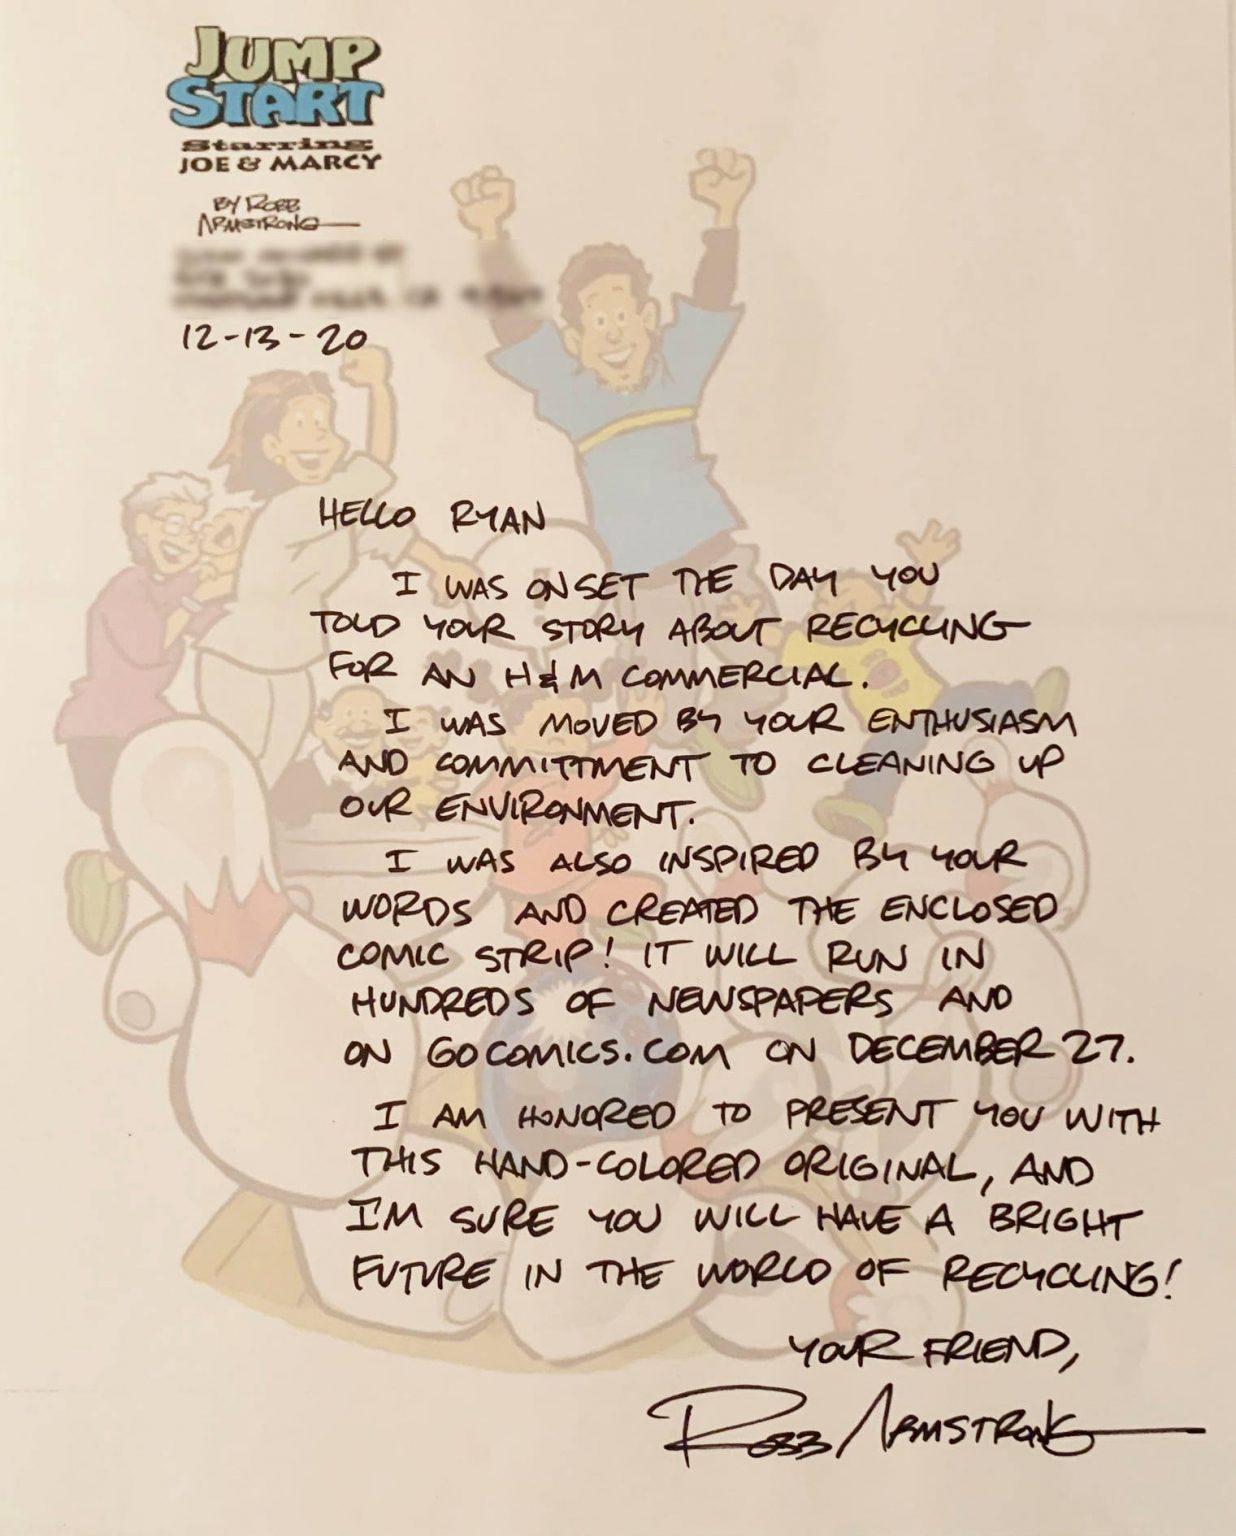 JUMP
START
Starring
JOE & MARCY
BY ROBB
ARMSTRONG
12-13-20
HELLO RYAN
I WAS ON SET THE DAY YOU
TOLD YOUR STORY ABOUT RECYCLING
FOR AN H&M COMMERCIAL.
I WAS MOVED BY YOUR ENTHUSIASM
AND COMMITTMENT TO CLEANING UP
OUR ENVIRONMENT.
I WAS ALSO INSPIRED BY YOUR
WORDS AND CREATED THE ENCLOSED
COMIC STRIP! IT WILL RUN IN
HUNDREDS OF NEWSPAPERS AND
ON GOCOMICS.COM ON DECEMBER 27.
I AM HONORED TO PRESENT YOU WITH
THIS HAND-COLORED ORIGINAL, AND
I'M SURE YOU WILL HAVE A BRIGHT
FUTURE IN THE WORLD OF RECYCLING!
YOUR FRIEND,
ROBB ARMSTRONG